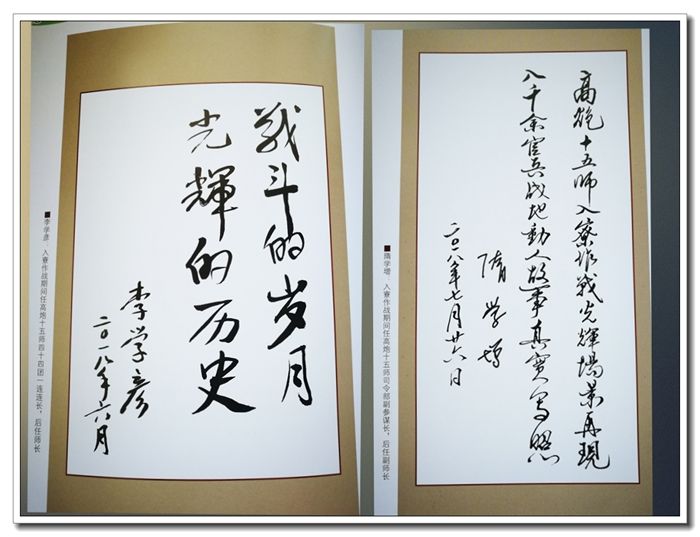 战斗的岁月
光輝的历史
李学彦
二〇一八年六月
■李学彦：入寮作战期间任高炮十五师四十四团一连连长，后任师长
高炮十五师入寮作戰光輝場景再現
八千余官兵战地動人故事真實写照
隋学增
二〇一八年七月廿六日
■隋学增：入寮作战期间任高炮十五师司令部副参谋长，后任副师长